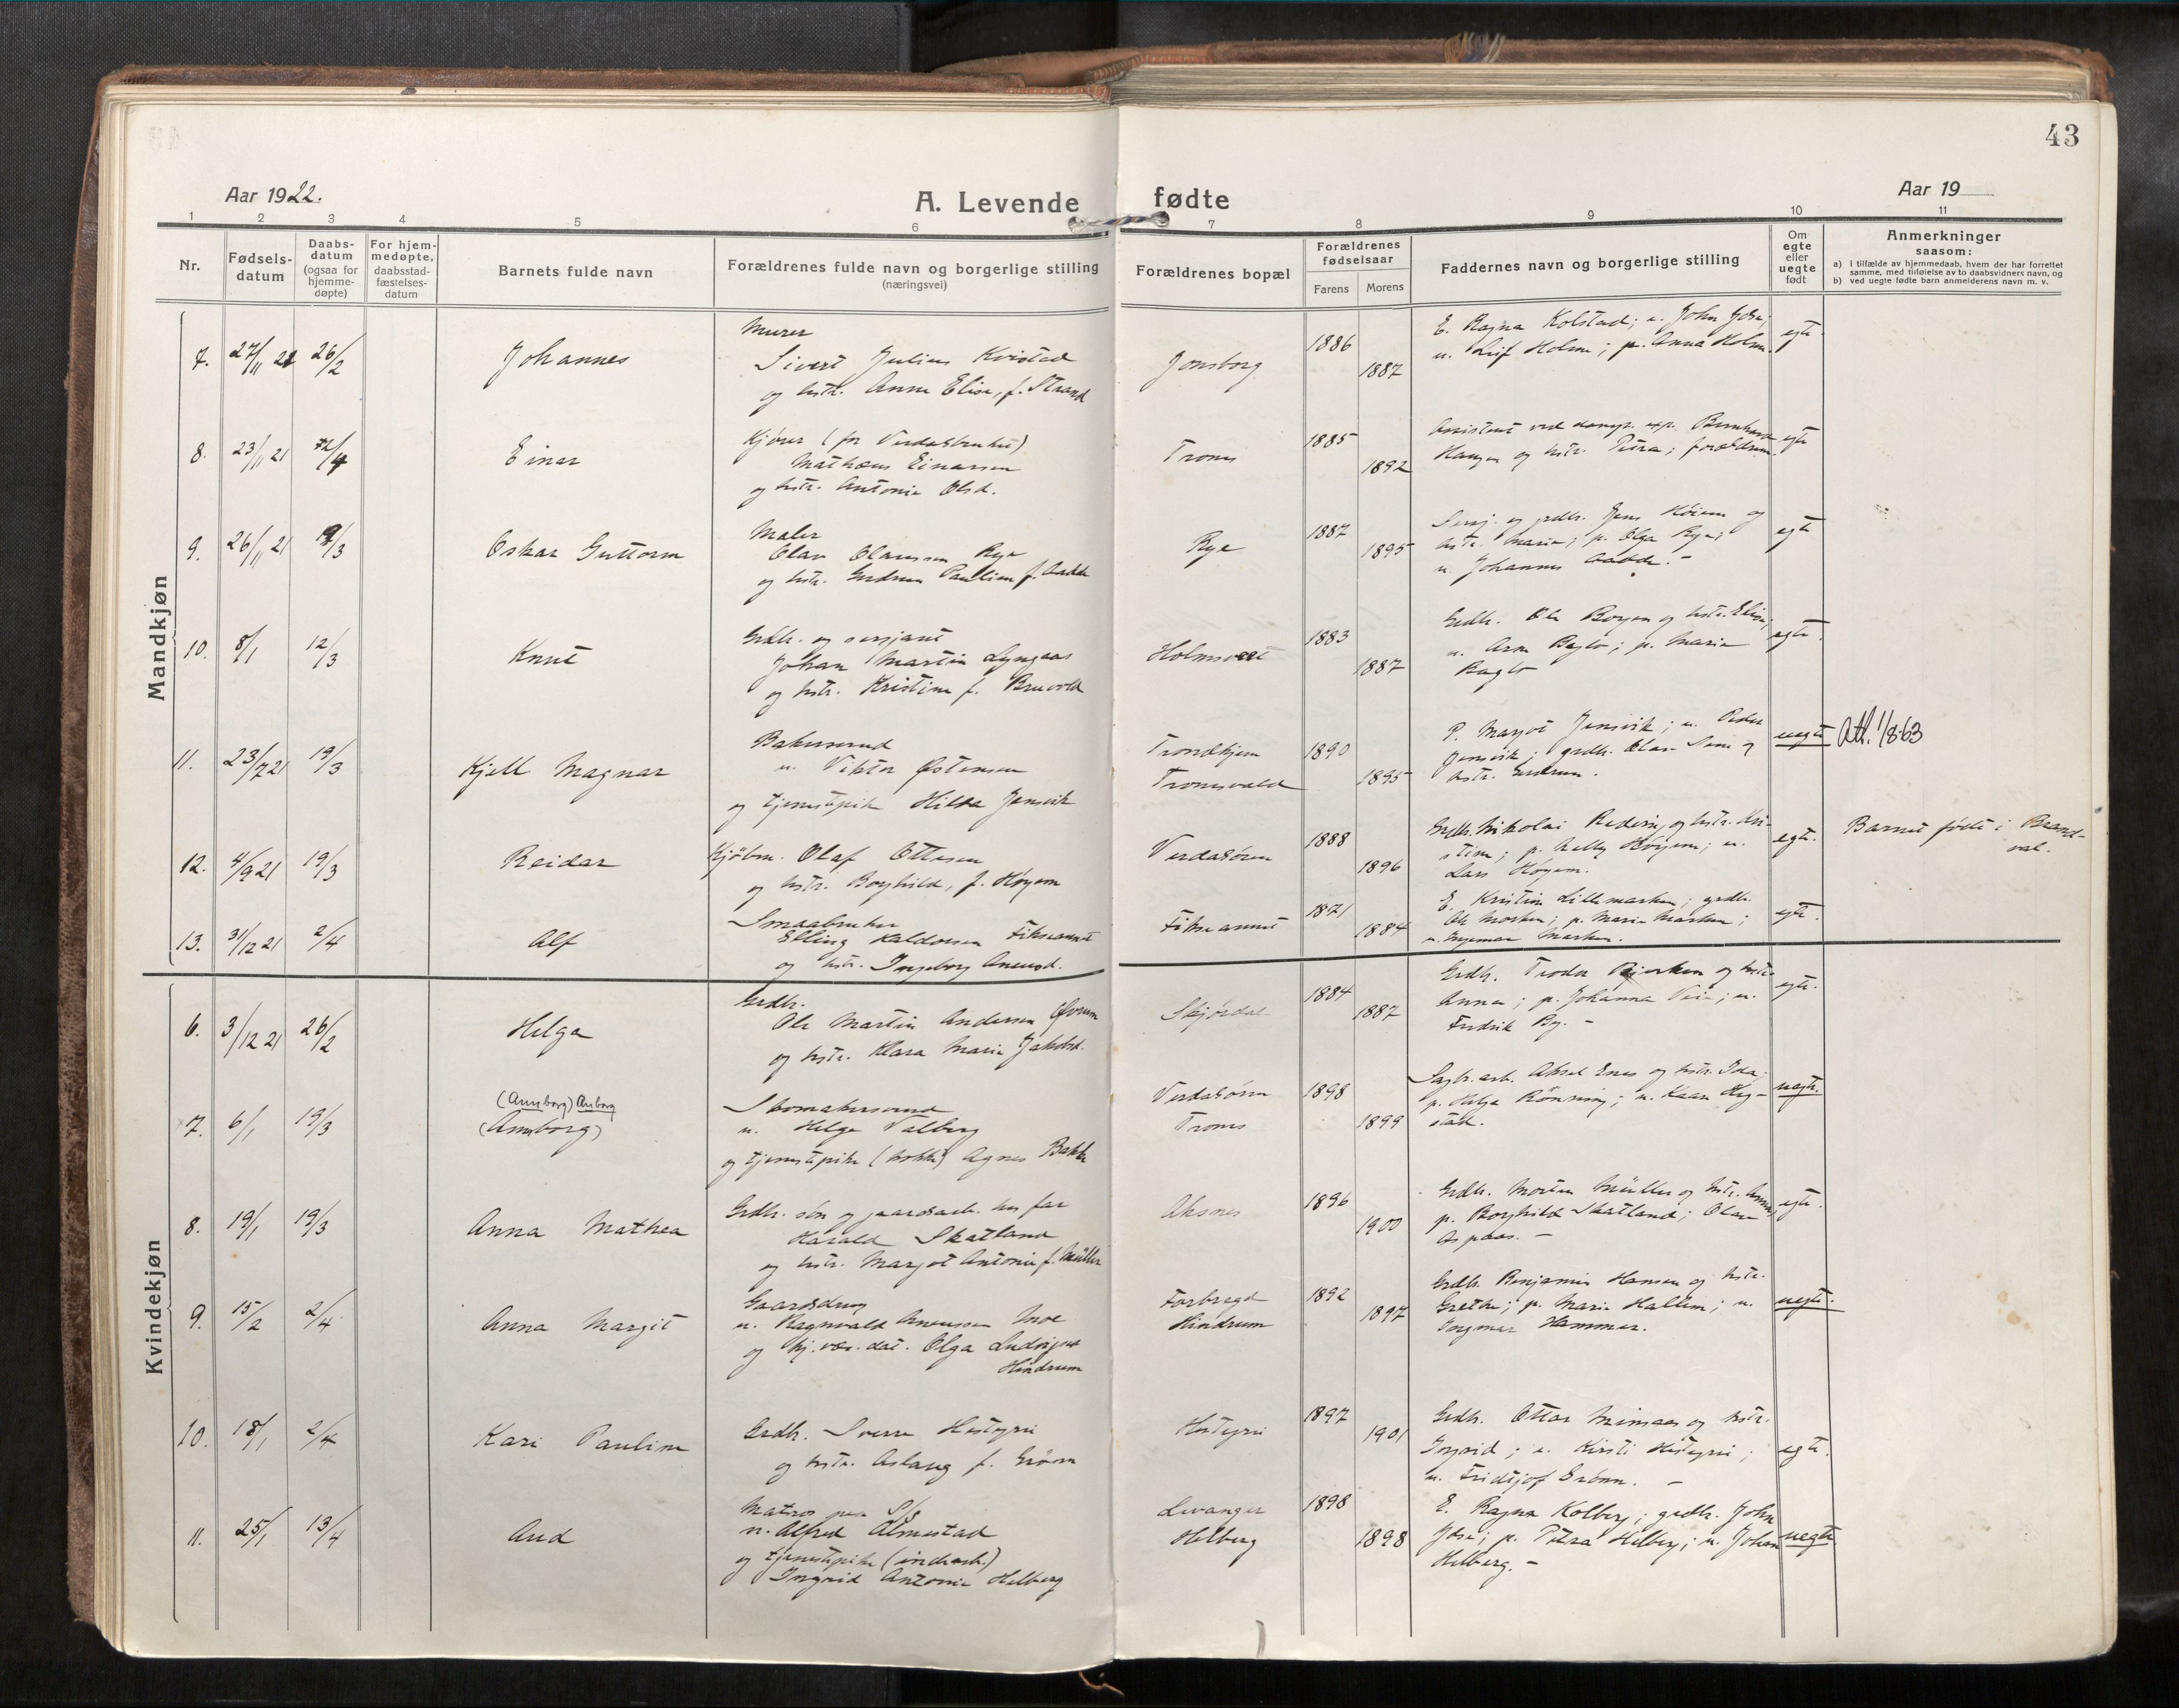 43
Aar 1922.
A. Levende fødte
Aar 19
1 2 3 4 5 6 7 8 9 10 11
Nr.
Fødsels-
datum
Daabs-
datum
(ogsaa for
hjemme-
døpte)
For hjem-
medøpte,
daabsstad-
fæstelses-
datum
Barnets fulde navn
Forældrenes fulde navn og borgerlige stilling
(næringsvei)
Forældrenes bopæl
Forældrenes
fødselsaar
Farens Morens
Faddernes navn og borgerlige stilling
Om
egte
eller
uegte
født
Anmerkninger
saasom:
a) i tilfælde av hjemmedaab, hvem der har forrettet
samme, med tilføielse av to daabsvidners navn, og
b) ved uegte fødte barn anmelderens navn m. v.
Mandkjøn
7. 27/11 21 26/2
Johannes
Murer
Sivert Julius Kvistad
og hstr. Anna Elise, f. Strand
Jonsborg
1886
1887
E. Ragna Kolstad; u. John
u. Leif Holm; p. Anna Holm.
egte.
8. 23/11 21
Einar
Kjører (for Verdalsbruket)
Mathæus Einarsen
og hstr. Antonie Olsd.
Trones
1885
1892
Assistent ved damps. exp. Bernhard
Haugen og hstr. Petra; forældrene.
egte
9. 26/11 21
Oskar Guttorm
Maler
Olav Olausson Rye
og hstr. Gudrun Pauline f. Aadde
Rye
1887
1895
Sersj. og grdbr. Jens
hstr. Marie; p. Olga Rye;
u. Johannes
egte
10. 8/1 12/3
Knut
Grdbr. og sersjant
Johan Martin Lyngaas
og hstr. Kristine f. Bruvold
Holmsveet
1883
1887
Grdbr. Ole Borgen og hstr. Elise;
u. Arne Baglo; p. Marie
Baglo
egte.
11. 23/7 21 19/3
Kjell Magnar
Bakersvend
u. Viktor Østensen
og tjenestepike Hilda Jensvik
Trondhjem
Tronesvald
1890
1895
P. Margot Jensvik; u. Peder
Jensvik; grdbr. Olav Sem og
hstr. Gudrun.
uegte
Att. 1/8-63
12. 4/9 21 19/3
Reidar
Kjøbm. Olaf Ottesen
og hstr. Borghild, f. Høyem
Verdalsøren
1888
1896
Grdbr. Nikolai og hstr. Kri-
stine; p. Nelly Høyem; u.
Lars Høyem.
egte.
Barnet født i Brand-
val.
13. 31/12 21 2/4
Alf
Smaabruker
Elling Kaldorsen Fikseaunet
og hstr. Ingeborg Aneusd.
Fikseaunet
1871
1884
E. Kristine Lillemarken; grdbr.
Ole Marken; p. Marie Marken;
u. Ingemar Marken.
egte.
Kvindekjøn
6. 3/12 21 26/2
Helga
Grdbr.
Ole Martin Andersen Øvrum
og hstr. Klara Marie Jakobsd.
Skjørdal
1884
1887
Grdbr. Teodor Bjerken og hstr.
Anna; p. Johanna; u.
Fredrik By. –
egte.
7. 6/1 19/3
(Aunborg) Auborg
(Annborg)
Skomakersvend
u. Helge Valberg
og tjenestepike (kokke) Agnes Bakke
Verdalsøren
Trones
1898
1899
Sagbr.arb. Aksel Enes og hstr. Ida;
p. Helga Rönning; u. Kaare Heg-
stad.
uegte.
8. 19/1 19/3
Anna Mathea
Grdbr. søn og gaardsarb. hos far
Harald Skatland
og hstr. Margot Antonie f. Müller
Aksnes
1896
1900
Grdbr. Morten Müller og hstr. Anna;
p. Borghild Skatland; Olav
Aspaas. –
egte.
9. 15/2 2/4
Anna Margit
Gaardsdreng
u. Ragnvald Aneussen Moe
og hj.vær. dat. Olga Ludvigsd
Hindrum
Forbregd
Hindrum
1892
1897
Grdbr. Benjamin Hansen og hstr.
Grethe; p. Marie Hallem; u.
Ingmar Hammer.
uegte.
10. 18/1 2/4
Kari Pauline
Grdbr. Sverre Hestegrei
og hstr. Aslaug f. Grönn
Hestegrei
1897
1901
Grdbr. Ottar Minsaas og hstr.
Ingrid; u. Kirsti Hestegrei;
u. Fridtjof Grönn. –
egte.
11. 25/1 13/4
Aud
Matros paa S/S
u. Alfred Almestad
og tjenestepike (indearb.)
Ingrid Antonie Helberg
Levanger
Helberg
1898
1898
E. Ragna Kolberg; grdbr. John
p. Petra Helberg; u. Johan
Helberg. –
uegte